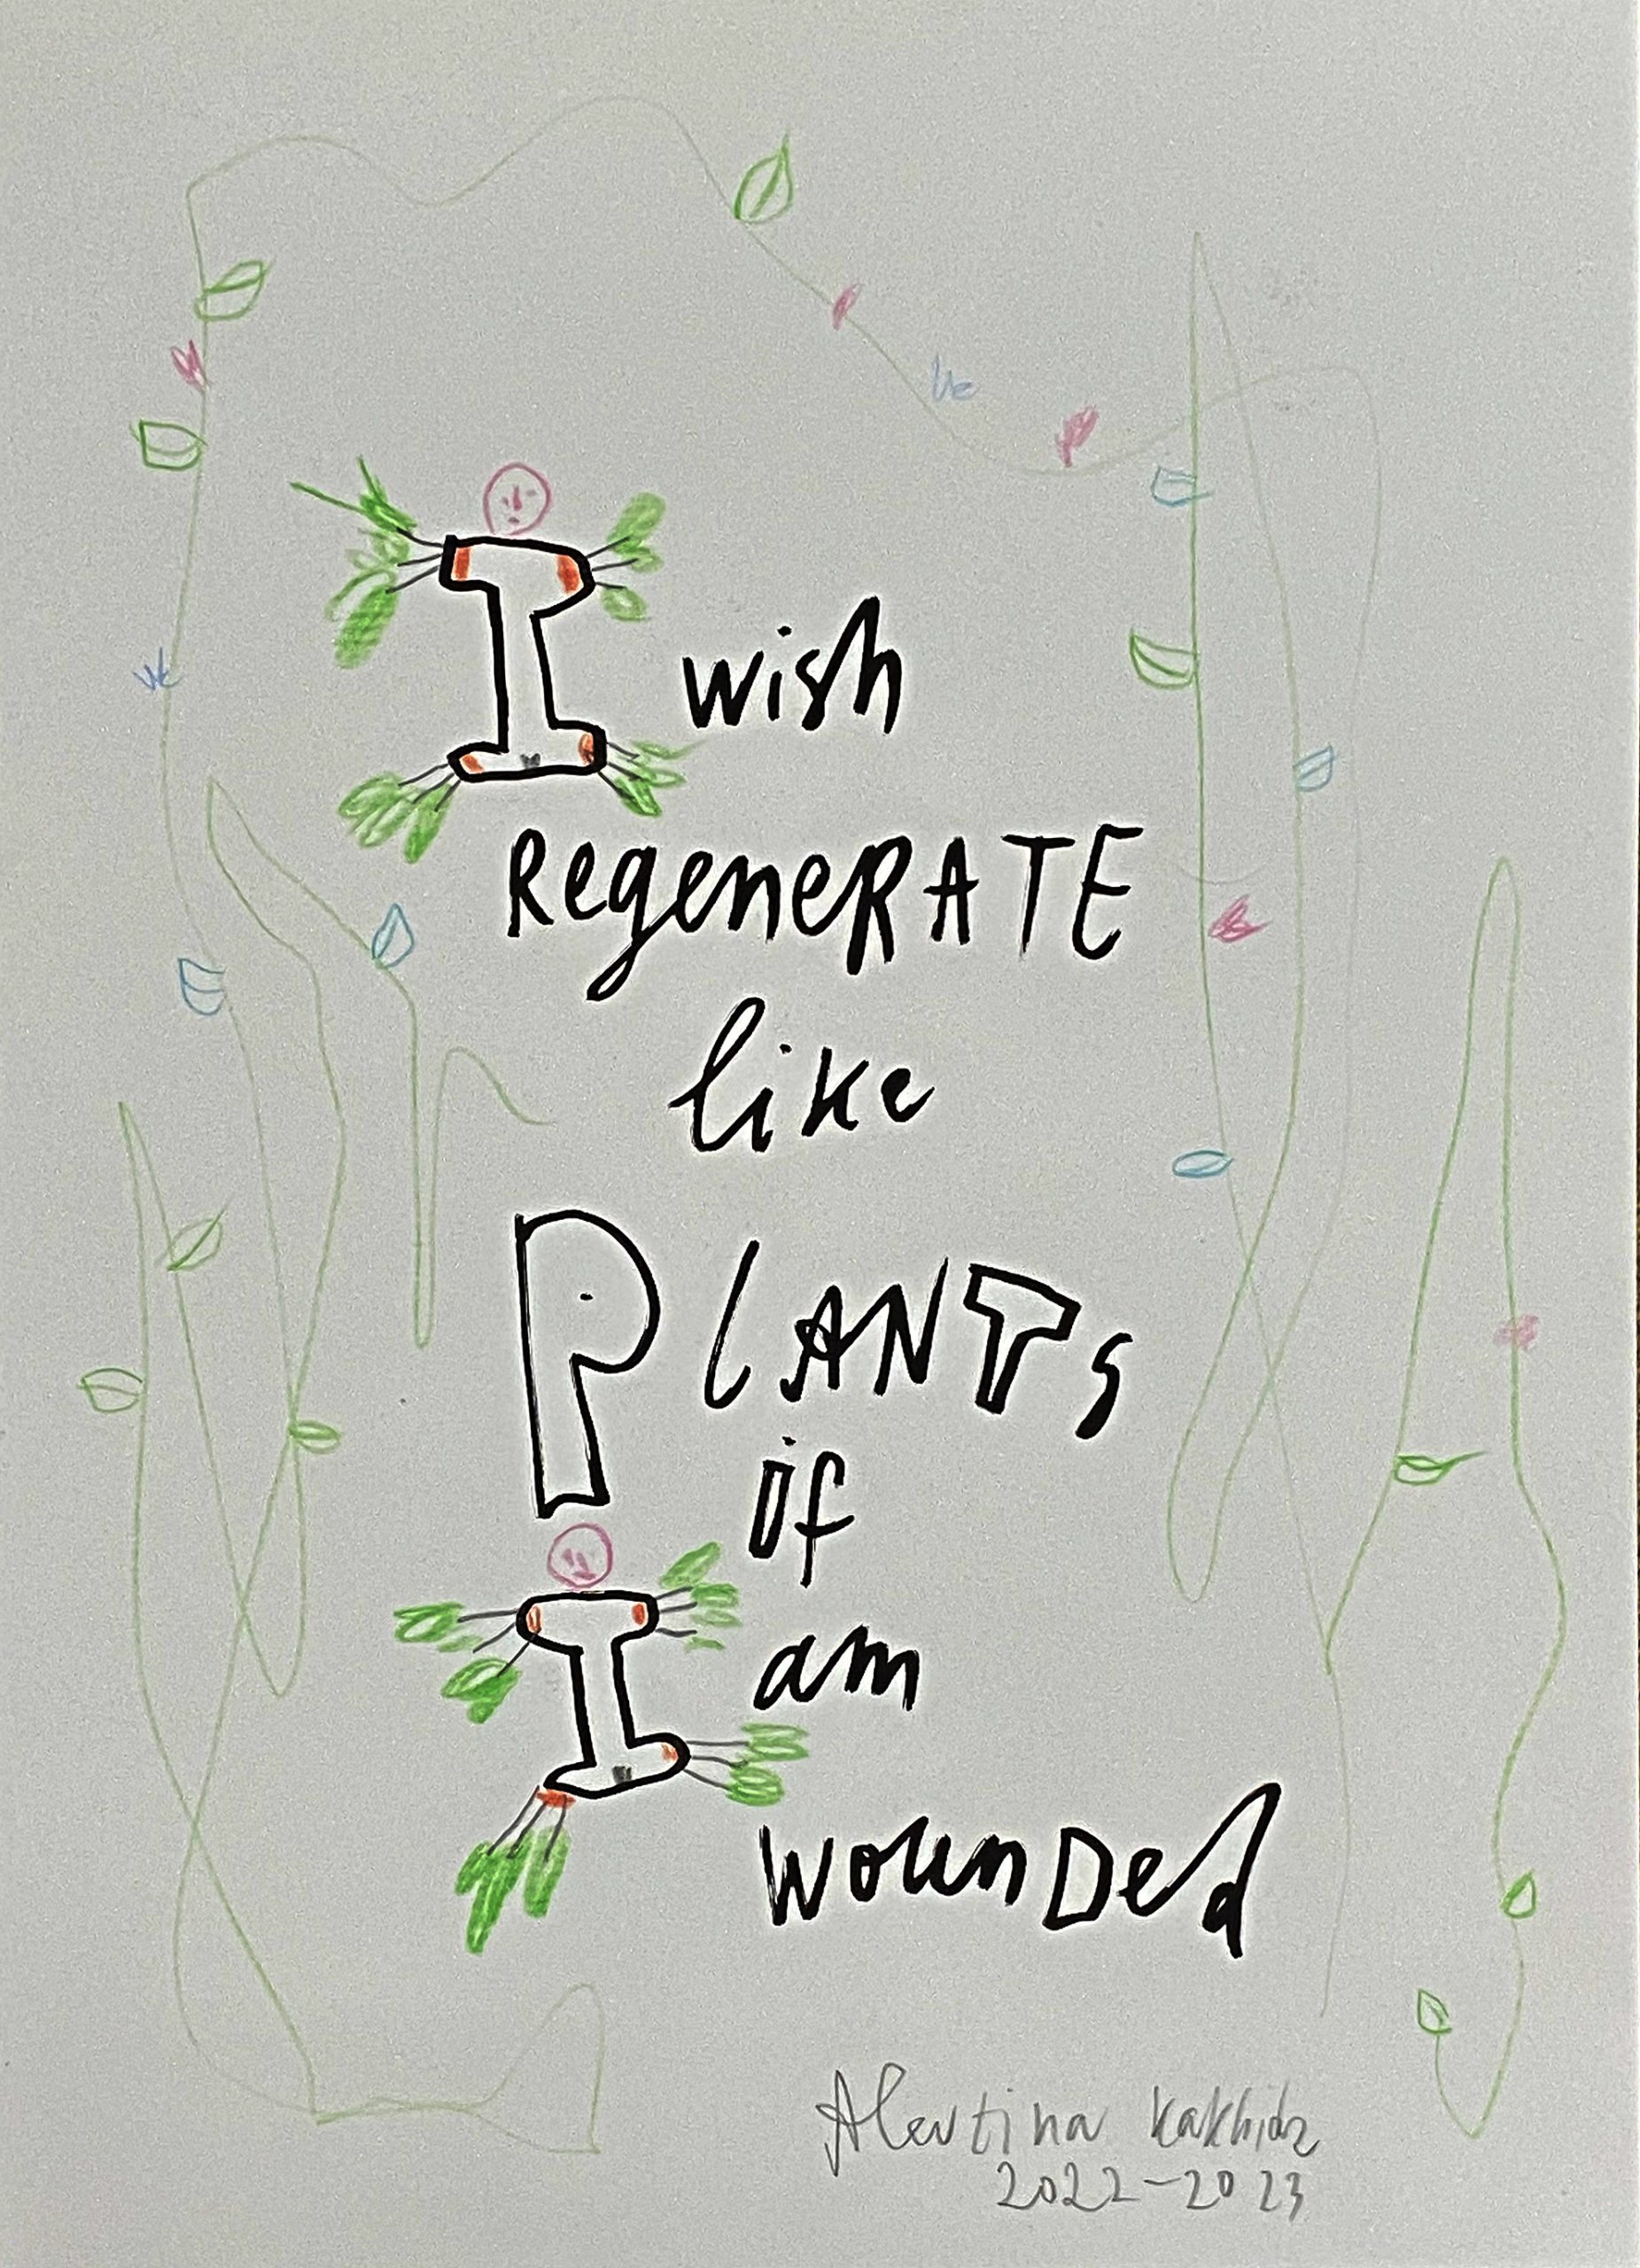 I wish
RegeneRATE
like
PLANTs
if
I am
wounDed
Alevtina Kakhidz
2022-2023